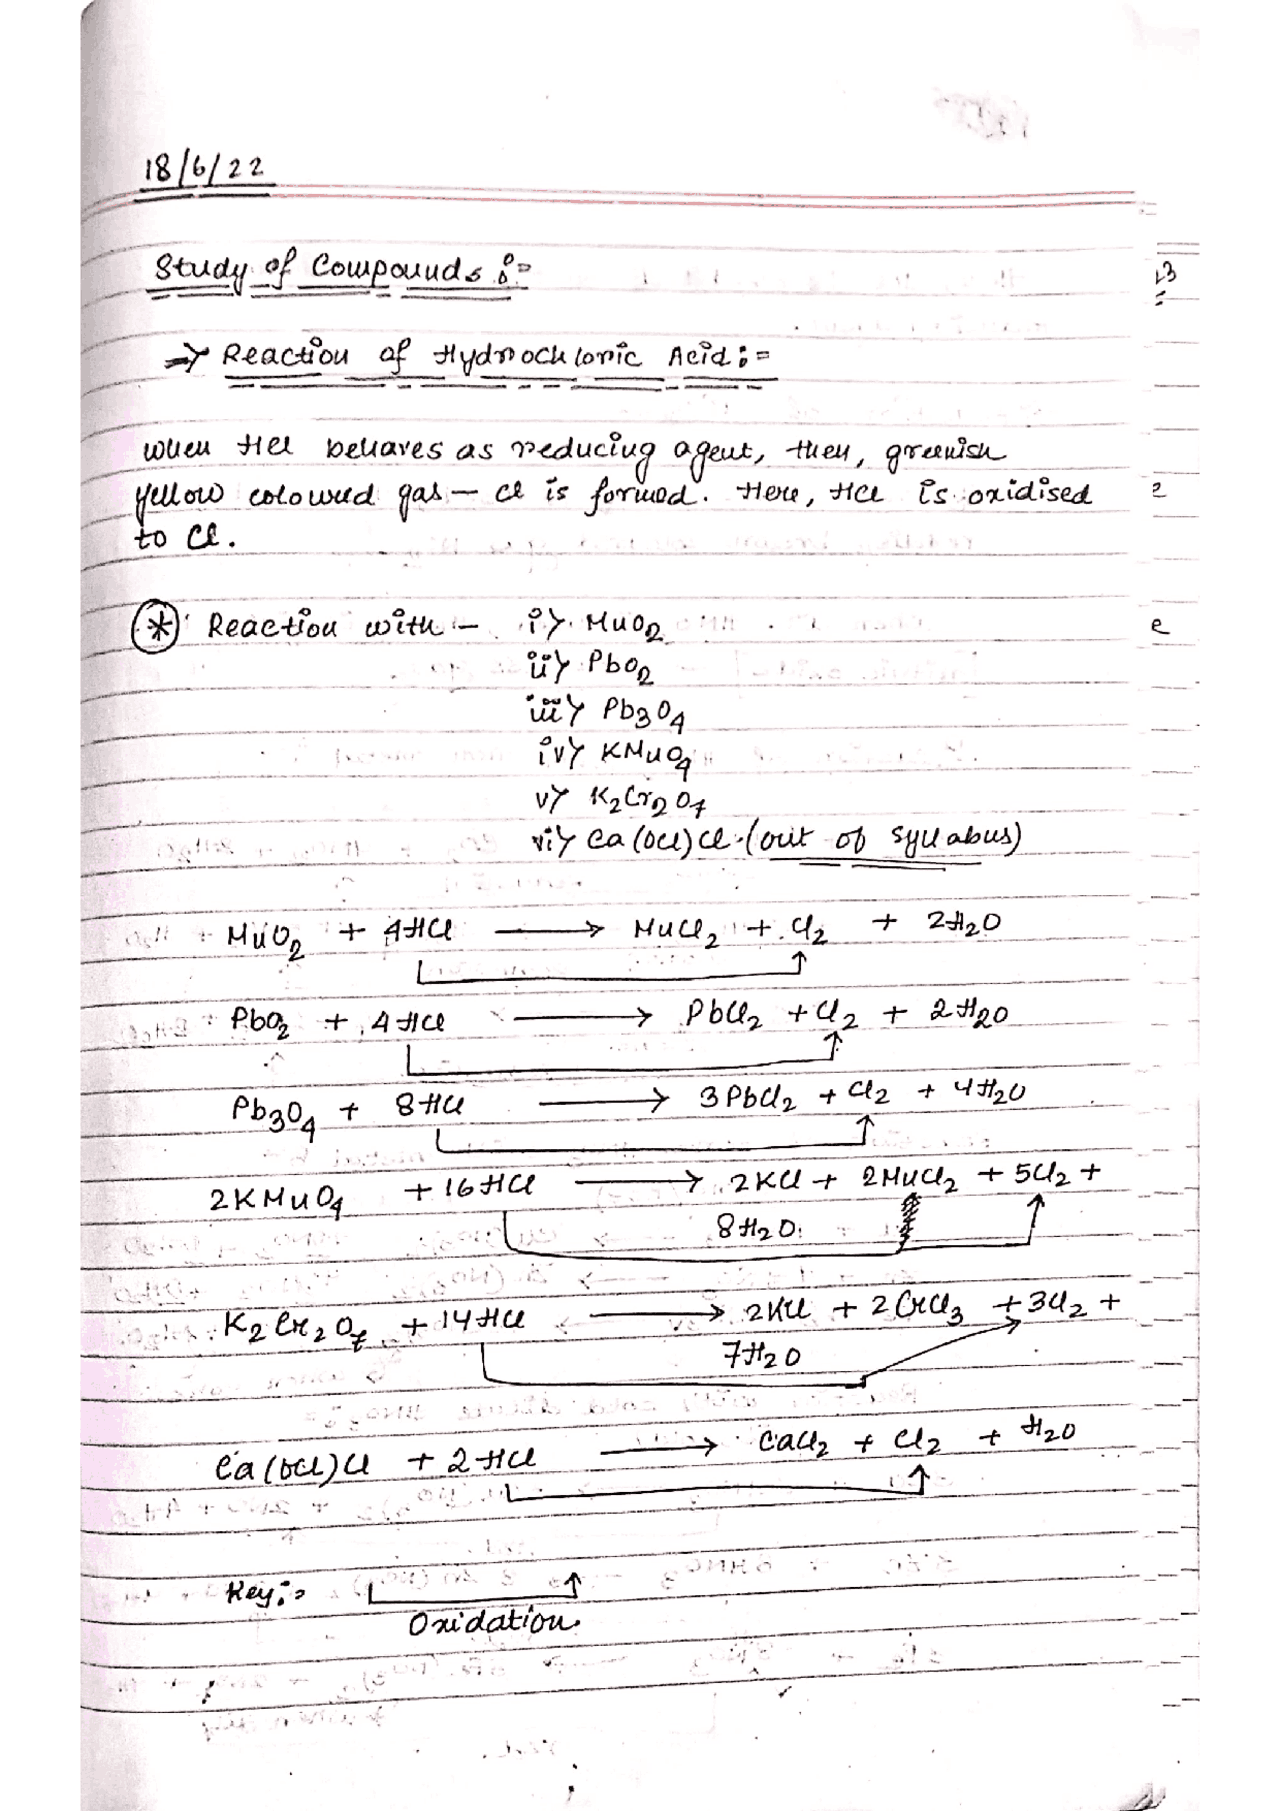 18/6/22
Study of Compounds :-
=> Reaction of Hydrochloric Acid :-
When HCl behaves as reducing agent, then, greenish
yellow coloured gas - Cl is formed. Here, HCl is oxidised
to Cl.
* Reaction with - i> MnO2
ii> PbO2
iii> Pb3O4
iv> KMnO4
v> K2Cr2O7
vi> Ca(OCl)Cl (out of syllabus)
MnO2 + 4HCl → MnCl2 + Cl2 + 2H2O
PbO2 + 4HCl → PbCl2 + Cl2 + 2H2O
Pb3O4 + 8HCl → 3PbCl2 + Cl2 + 4H2O
2KMnO4 + 16HCl → 2KCl + 2MnCl2 + 5Cl2 +
8H2O
K2Cr2O7 + 14HCl → 2KCl + 2CrCl3 + 3Cl2 +
7H2O
Ca(OCl)Cl + 2HCl → CaCl2 + Cl2 + H2O
Key :-
Oxidation